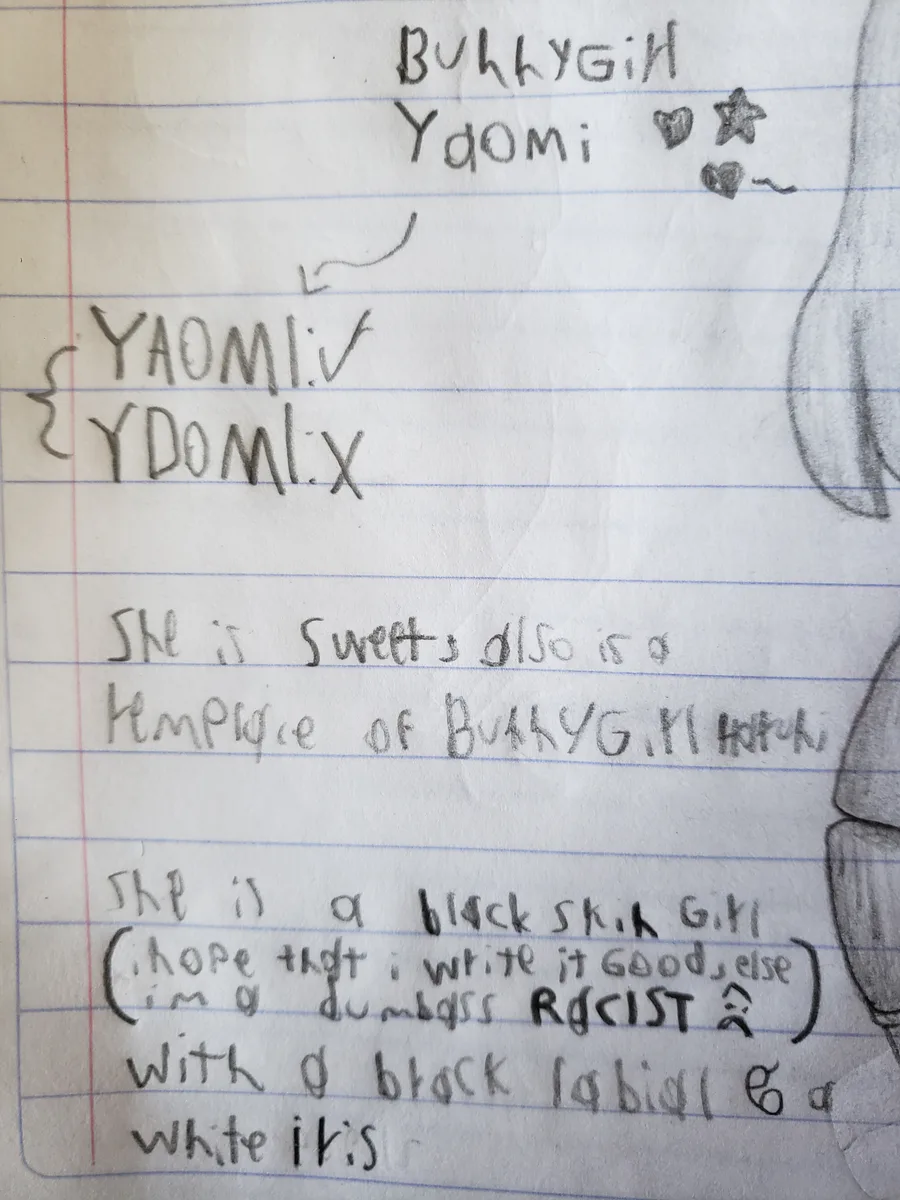 BunnyGirl
Yaomi
YAOMI:✓
YDOMI:X
She is sweet, also is a
template of BunnyGirl
She is a black skin Girl
(i hope that i write it Good, else
im a dumbass RACIST :( )
with a black labial & a
white iris